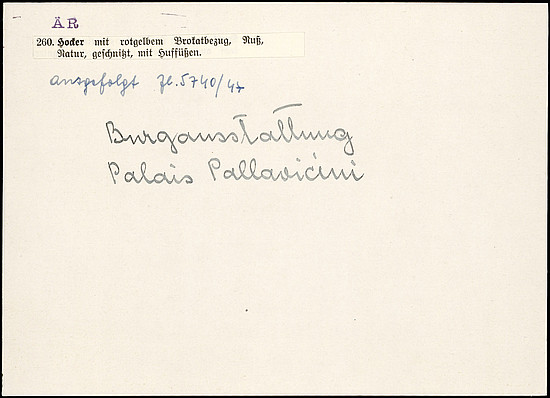 ÄR
260. Hocker mit rotgelbem Brokatbezug, Nuß,
Natur, geschnitzt, mit Huffüßen.
ausgefolgt Zl. 5740/47
Burgausstattung
Palais Pallavicini